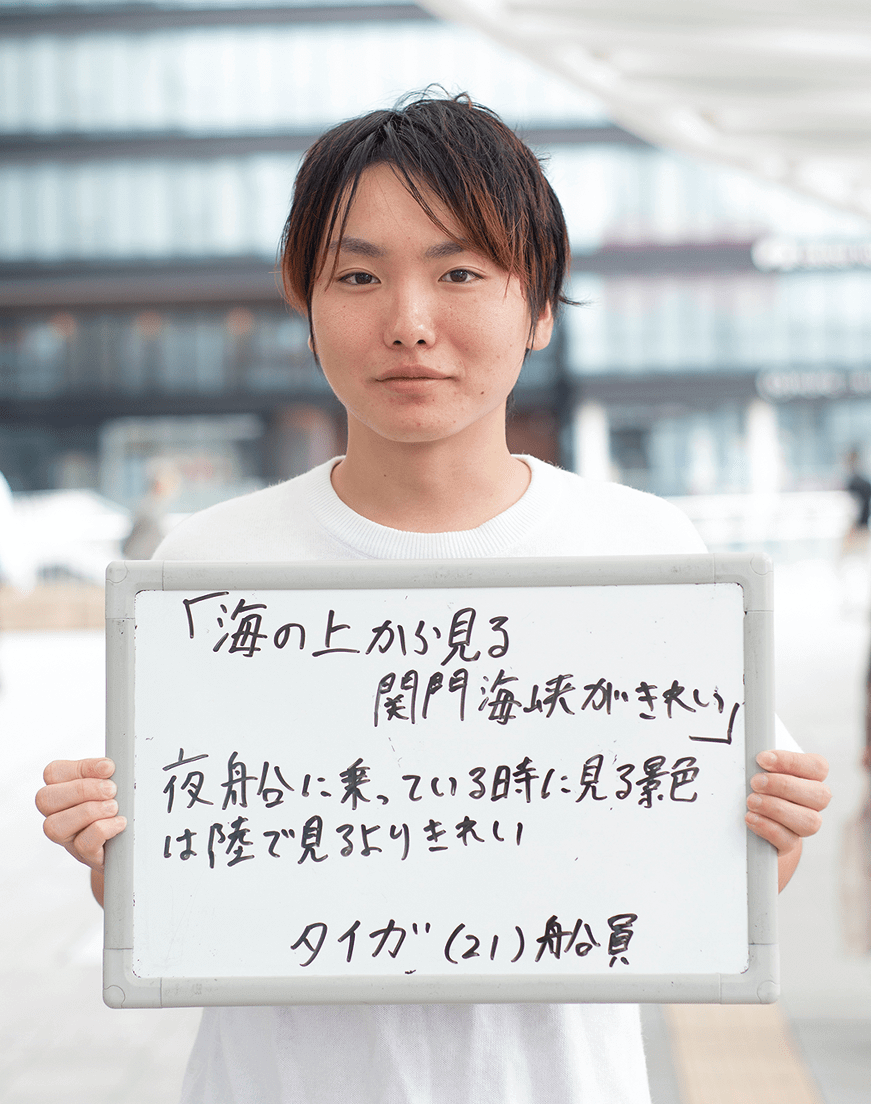 「海の上から見る
関門海峡がきれい」
夜船に乗っている時に見る景色
は陸で見るよりきれい
タイガ(21)船員